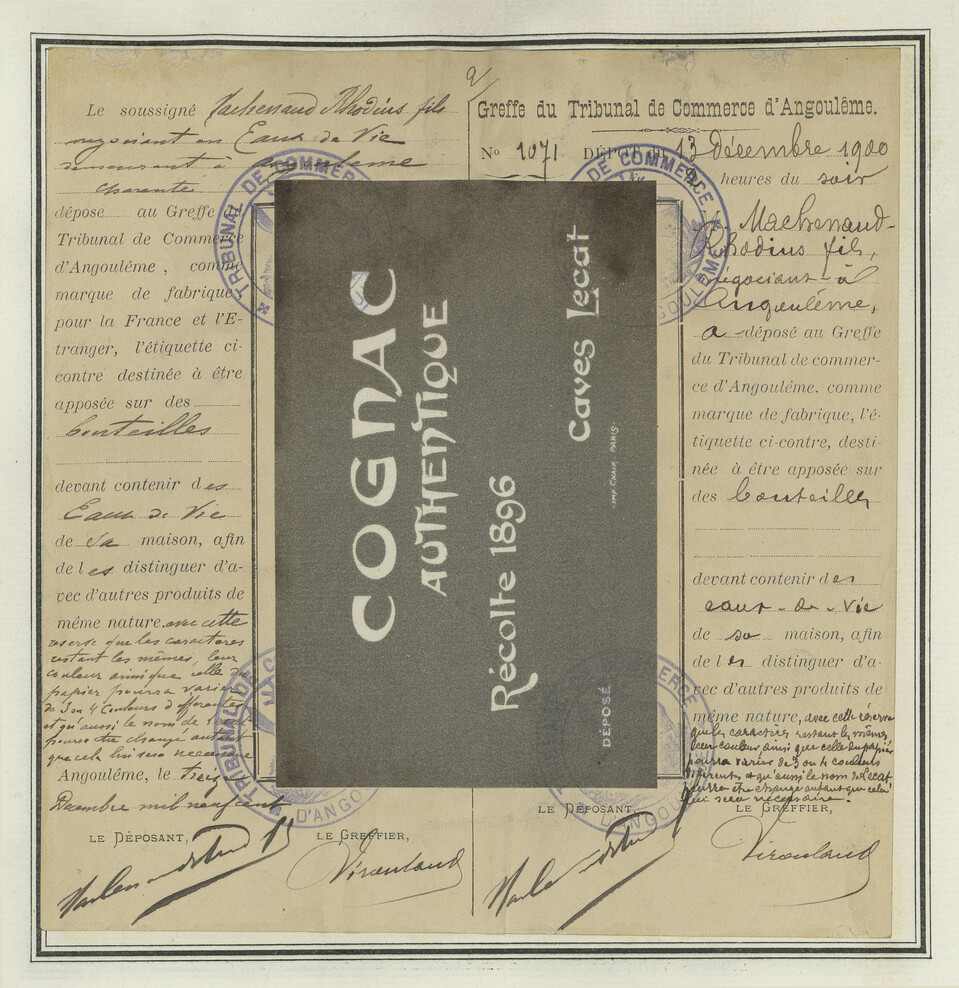 Le soussigné Machenaud Rhodius fils
négociant en Eaux de Vie
demeurant à Angoulême
Charente
dépose au Greffe du
Tribunal de Commerce
d'Angoulême, comme
marque de fabrique
pour la France et l'E-
tranger, l'étiquette ci-
contre destinée à être
apposée sur des
bouteilles
devant contenir des
Eaux de Vie
de sa maison, afin
de les distinguer d'a-
vec d'autres produits de
même nature. avec cette
reserve que les caractères
restant les mêmes, leur
couleur ainsi que celle du
papier pourra varier
de 3 ou 4 couleurs differentes
et qu'aussi le nom de Lecat
pourra être changé autant
que cela lui sera necessaire
Angoulême, le treize
Décembre mil neuf cent
LE DÉPOSANT, LE GREFFIER,
Viroulaud
Greffe du Tribunal de Commerce d'Angoulême.
No 1071 DÉPÔT du 13 Décembre 1900
2 heures du soir
Machenaud-
Rhodius fils,
négociant à
Angoulême,
a déposé au Greffe
du Tribunal de commer-
ce d'Angoulême. comme
marque de fabrique, l'é-
tiquette ci-contre, desti-
née à être apposée sur
des bouteilles
devant contenir des
eaux-de-vie
de sa maison, afin
de les distinguer d'a-
vec d'autres produits de
même nature, avec cette réserve
que les caractères restant les mêmes
leur couleur ainsi que celle du papier
pourra varier de 3 ou 4 couleurs
différentes et qu'aussi le nom de Lecat
pourra être changé autant que cela
lui sera nécessaire.
LE DÉPOSANT, LE GREFFIER,
Viroulaud
COGNAC
AUTHENTIQUE
Récolte 1896
Caves Lecat
IMP. CHAIX, PARIS.
DÉPOSÉ.
TRIBUNAL DE COMMERCE
TRIBUNAL DE COMMERCE D'ANGOULÊME
TRIBUNAL D'ANGO
COMMERCE D'ANGOU